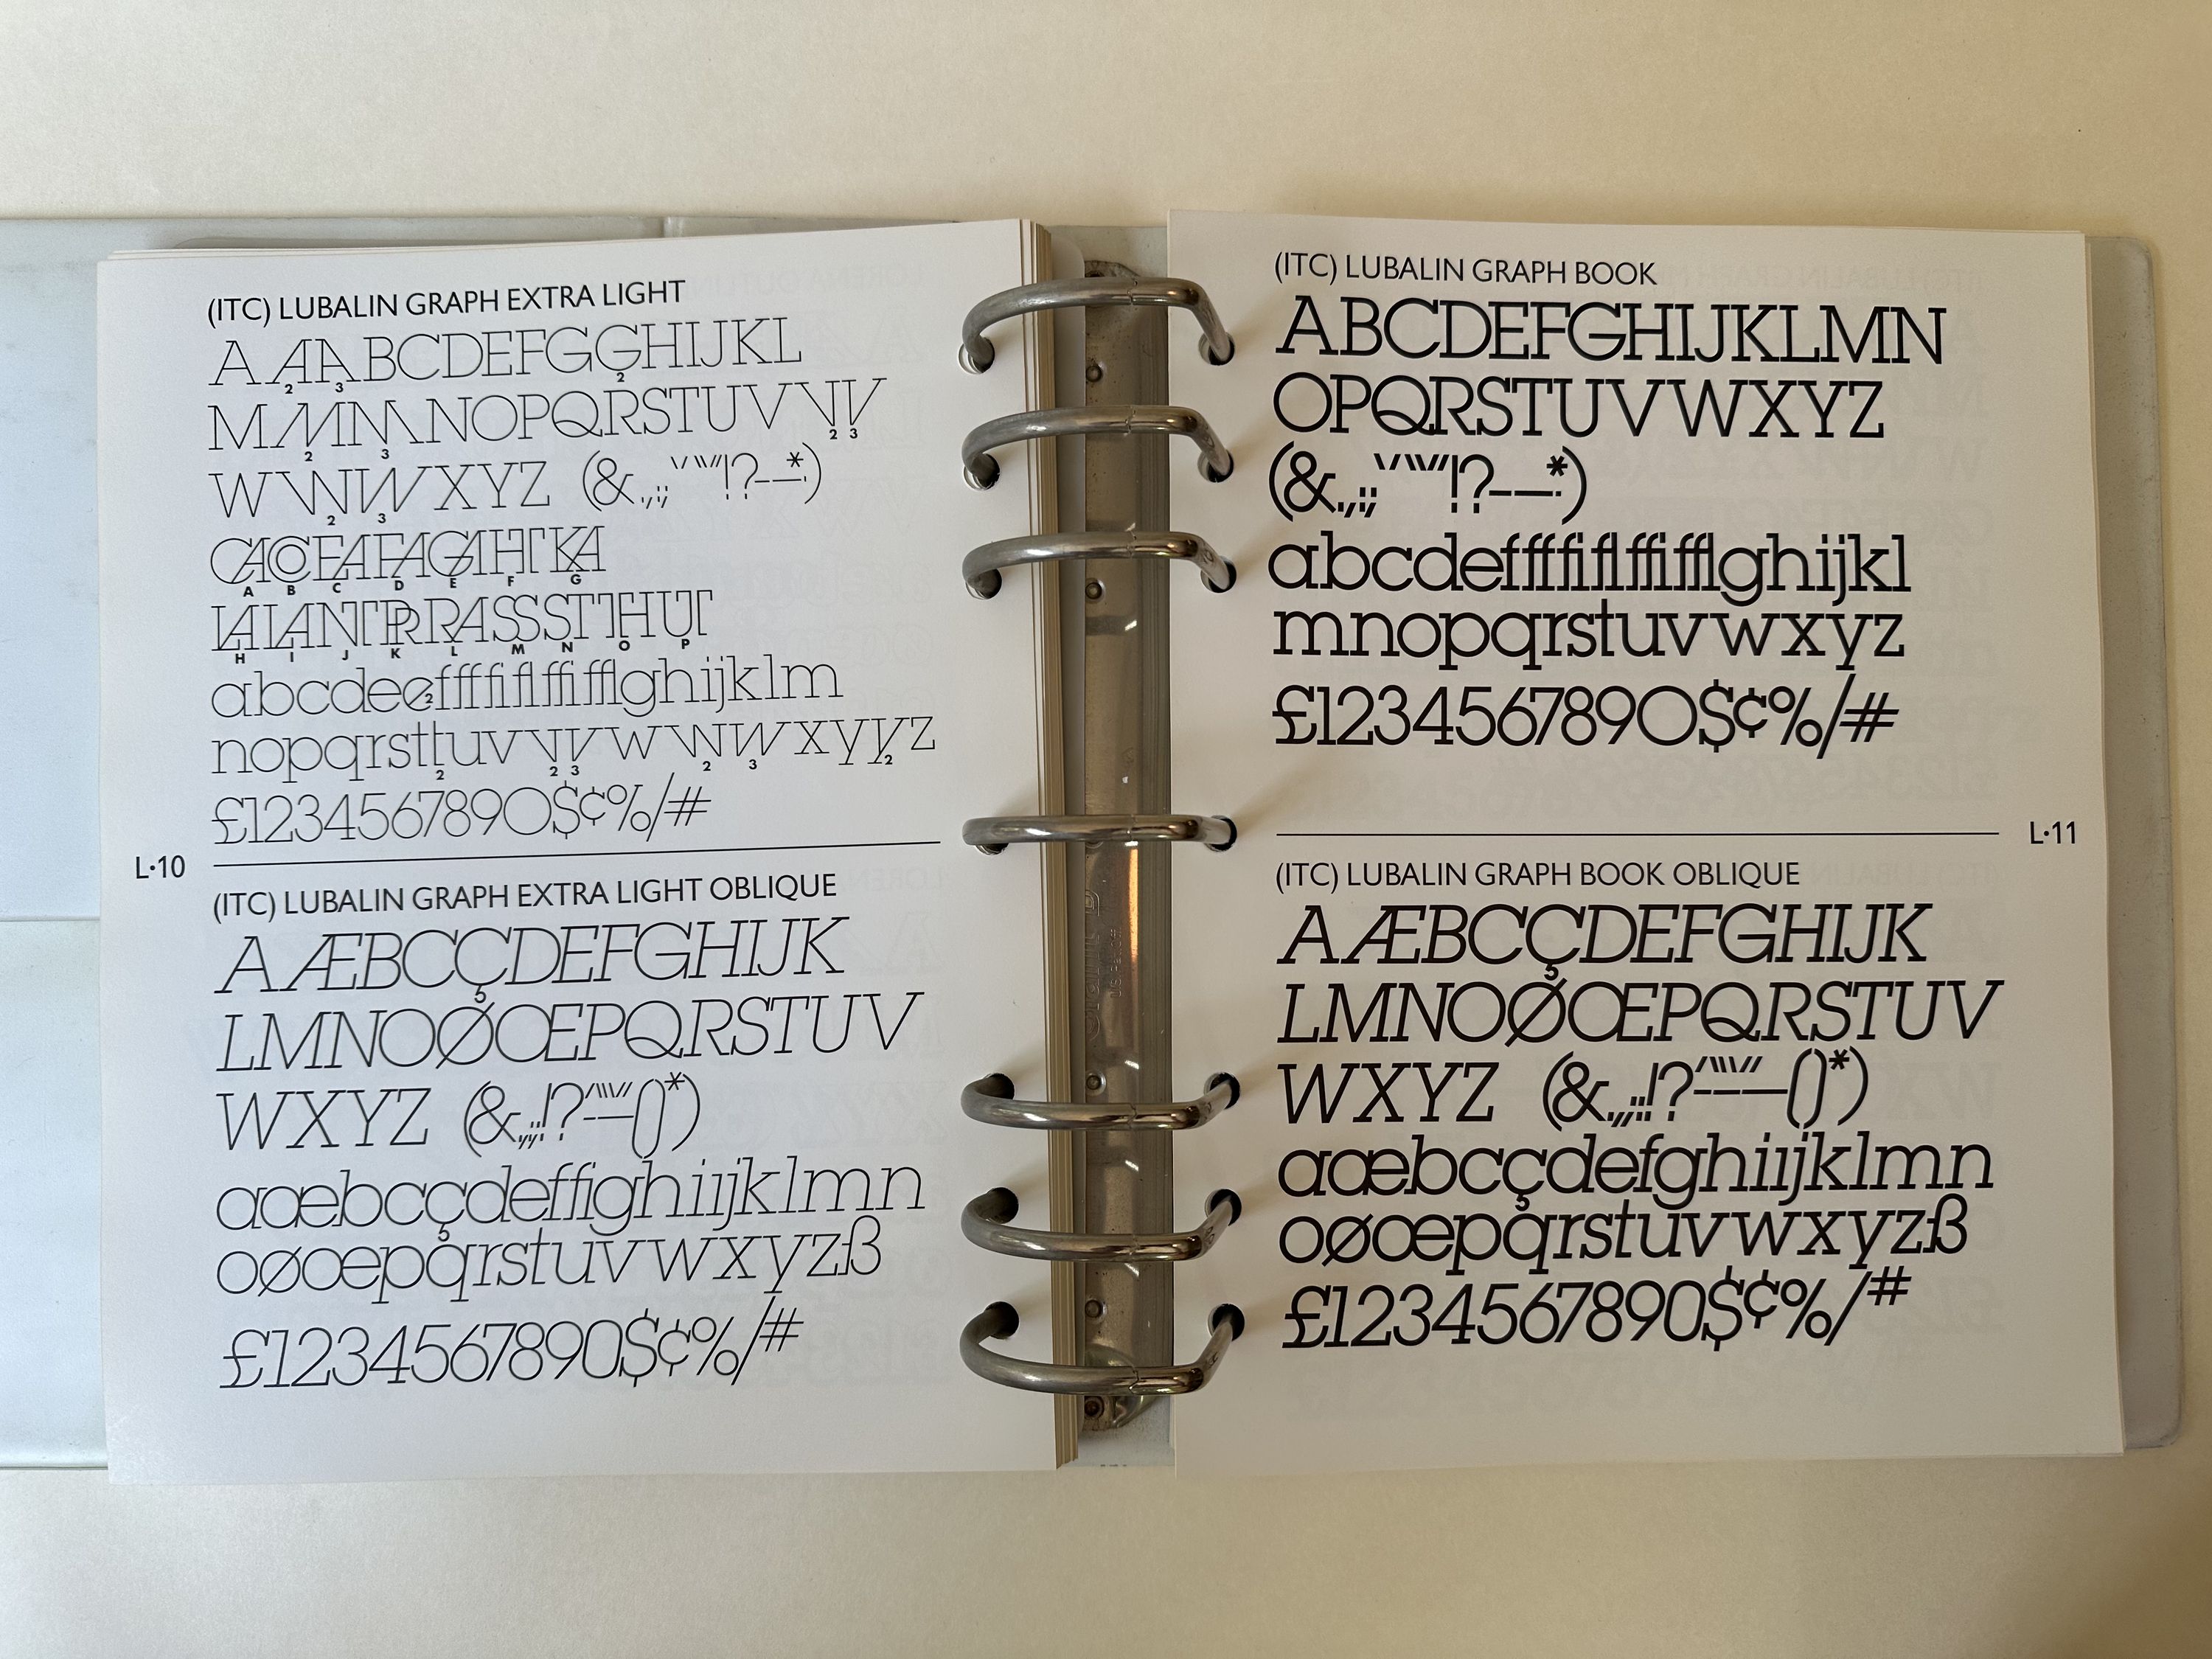 (ITC) LUBALIN GRAPH EXTRA LIGHT
AAABCDEFGGHIJKL
2 3 2
MMMNOPQRSTUVVV
2 3 2 3
WWWXYZ (&.,:;‘’“”!?-—*)
2 3
CACOEAFAGAHTKA
A B C D E F G
LALANTRRASSSTTHUT
H I J K L M N O P
abcdeefffffiflffifflghijklm
2
nopqrsttuvvvwwwxyyz
2 2 3 2 3 2
£1234567890$¢%/#
L·10
(ITC) LUBALIN GRAPH EXTRA LIGHT OBLIQUE
AÆBCÇDEFGHIJK
LMNOØŒPQRSTUV
WXYZ (&.,;:!?‘’“”-—()*)
aæbcçdeffighiıjklmn
oøœpqrstuvwxyzß
£1234567890$¢%/#
(ITC) LUBALIN GRAPH BOOK
ABCDEFGHIJKLMN
OPQRSTUVWXYZ
(&.,:;‘’“”!?-—*)
abcdefffffiflffifflghijkl
mnopqrstuvwxyz
£1234567890$¢%/#
L·11
(ITC) LUBALIN GRAPH BOOK OBLIQUE
AÆBCÇDEFGHIJK
LMNOØŒPQRSTUV
WXYZ (&.,;:!?‘’“”-—()*)
aæbcçdefghiıjklmn
oøœpqrstuvwxyzß
£1234567890$¢%/#